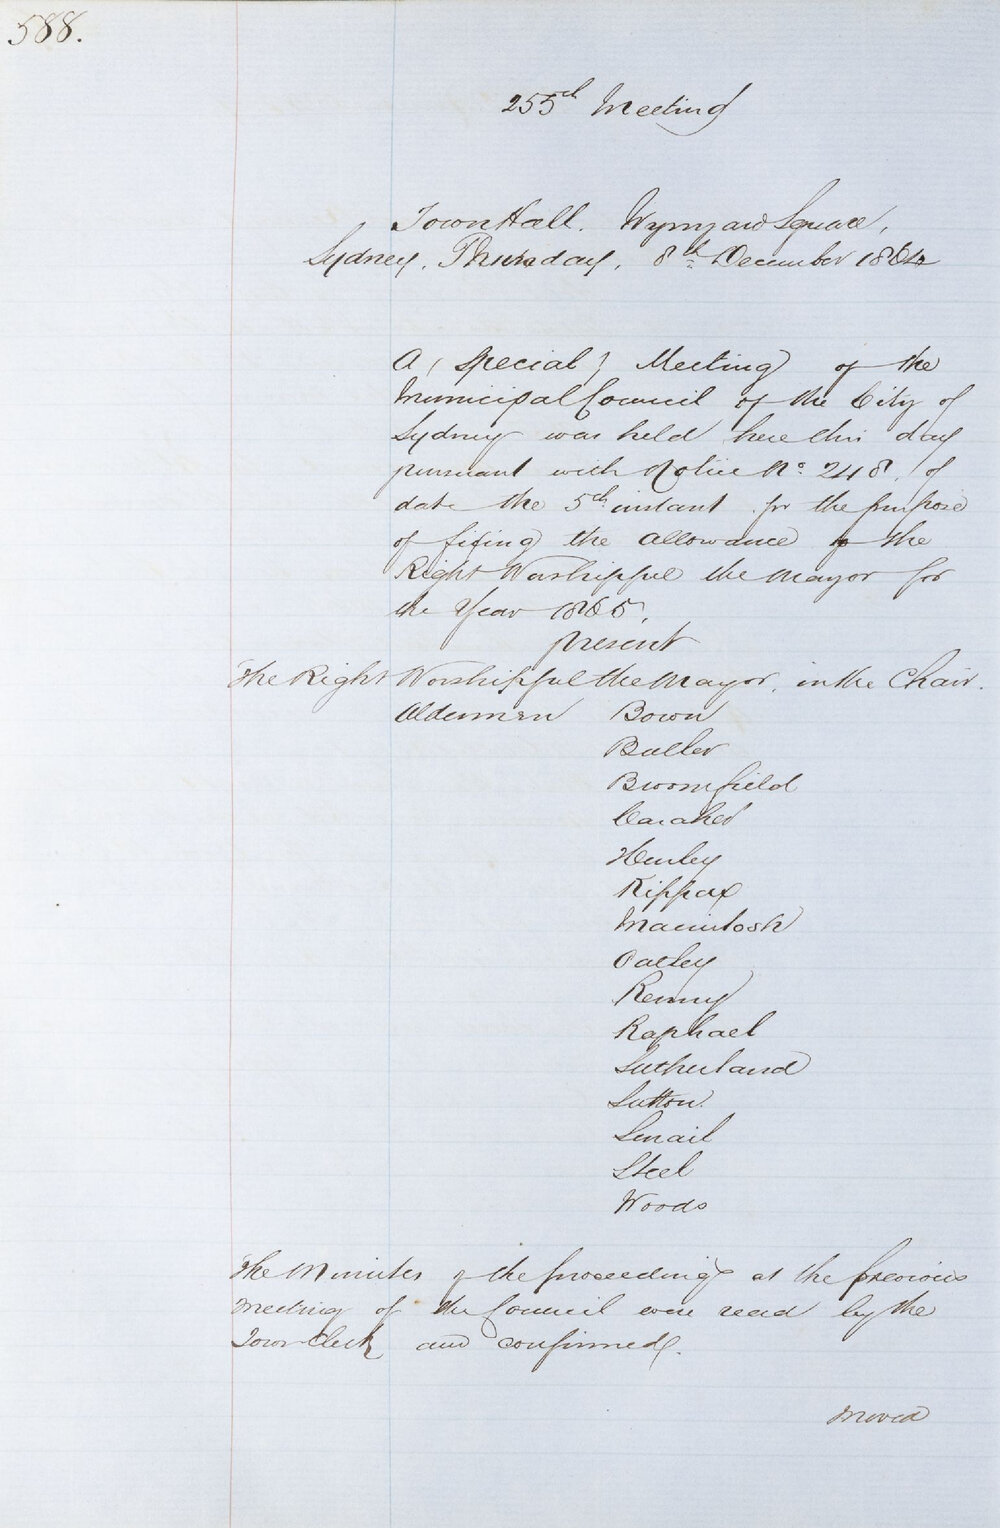 588.
255th Meeting
Town Hall. Wynyard Square,
Sydney, Thursday, 8th December 1864
A (Special) Meeting of the
Municipal Council of the City of
Sydney was held here this day
pursuant with Notice No. 248, of
date the 5th instant for the purpose
of fixing the allowance to the
Right Worshipful the Mayor for
the Year 1865.
present
The Right Worshipful the Mayor, in the Chair.
Aldermen Bown
Butler
Broomfield
Caraher
Hurley
Kippax
Macintosh
Oatley
Renny
Raphael
Sutherland
Sutton
Smail
Steel
Woods
The Minutes of the proceedings at the previous
meeting of the Council were read by the
Town Clerk and confirmed.
Moved